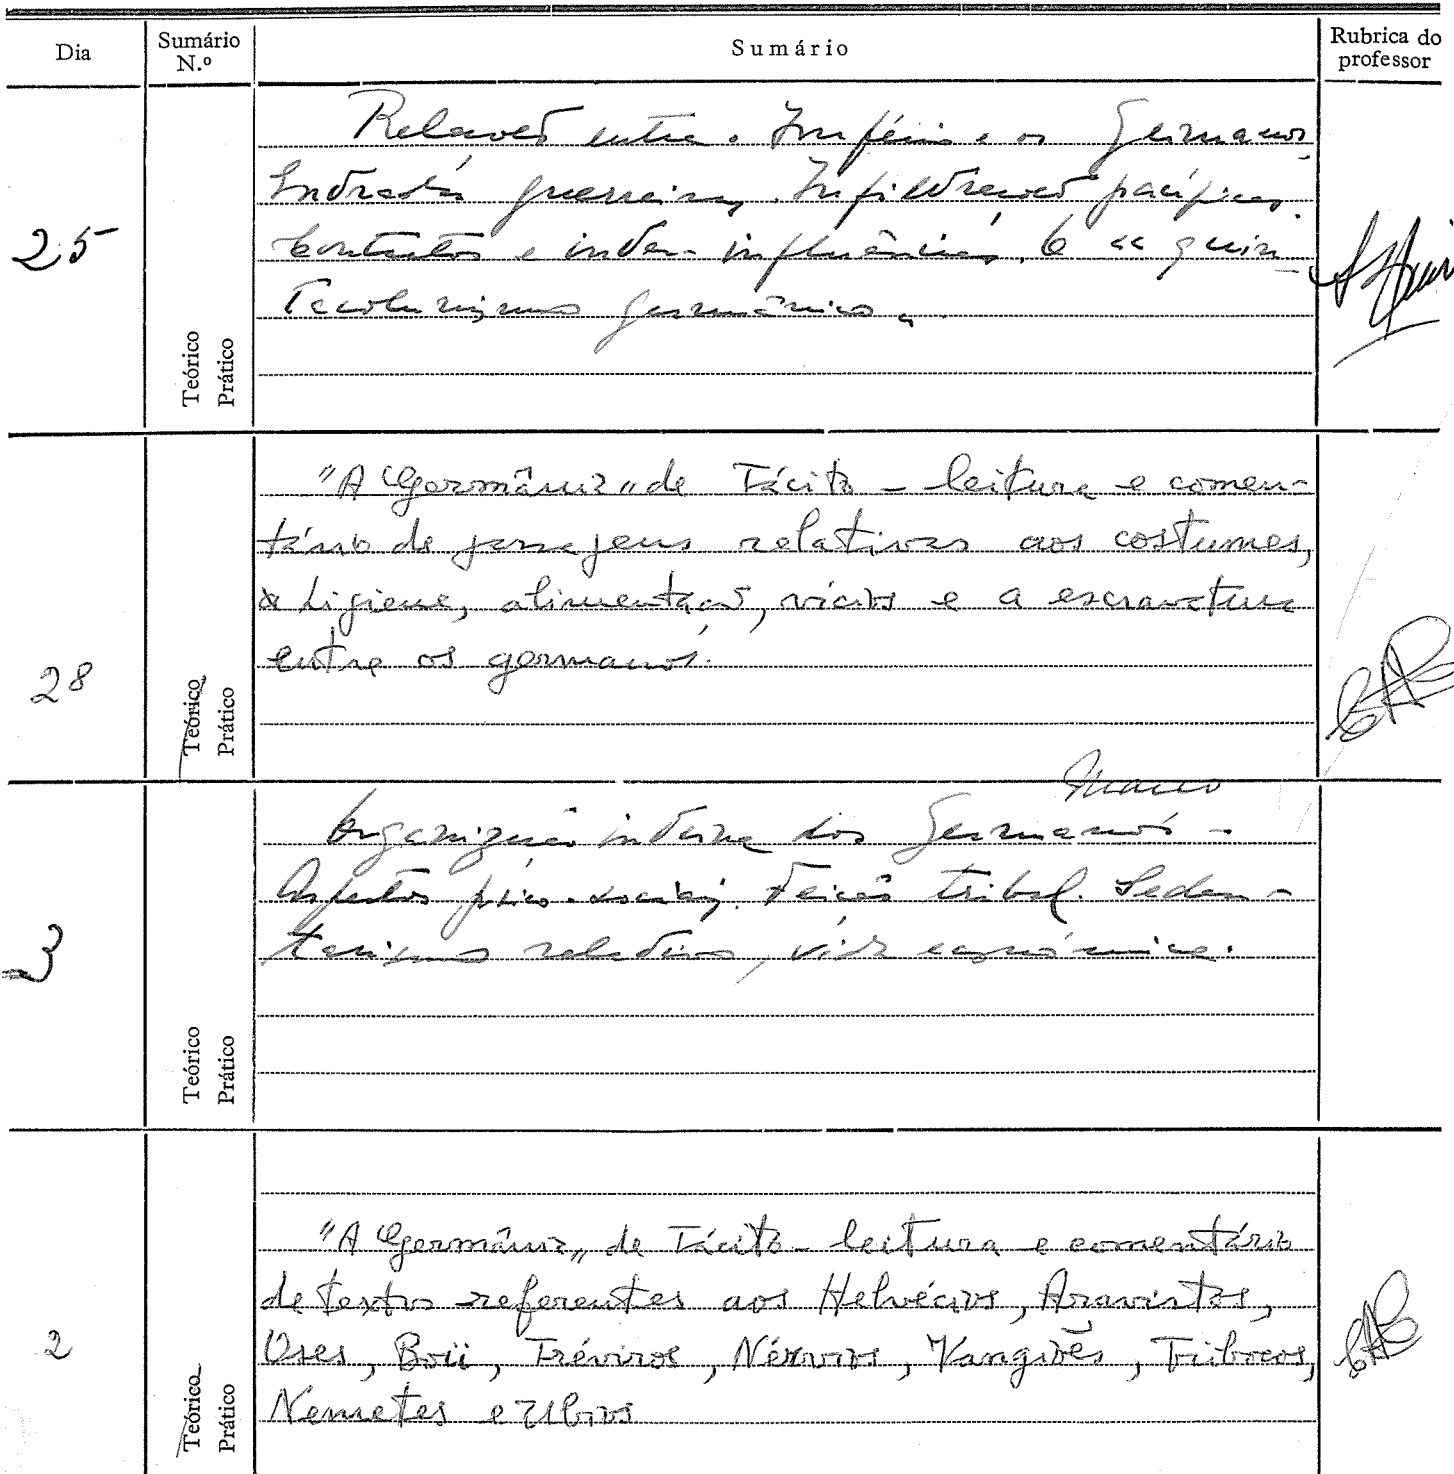 Dia
Sumário N.º
Sumário
Rubrica do professor
25
Teórico
Prático
Relações entre o Império e os Germanos
Entradas guerreiras. Infiltrações pacíficas.
Contatos e inter-influências. O
tacolunismo germânico.
28
Teórico
Prático
"A Germânia" de Tácito – leitura e comen-
tário de passagens relativas aos costumes,
à higiene, alimentação, vícios e a escravatura
entre os germanos.
Março
3
Teórico
Prático
Organização interna dos Germanos –
Aspectos psico-sociais. Feição tribal. Seden-
tarismo relativo, vida económica.
2
Teórico
Prático
"A Germânia" de Tácito – leitura e comentário
de textos referentes aos Helvécios, Araviscos,
Oses, Boii, Tréviros, Nérvios, Vangiões, Tribocos,
Nemetes e Ubios